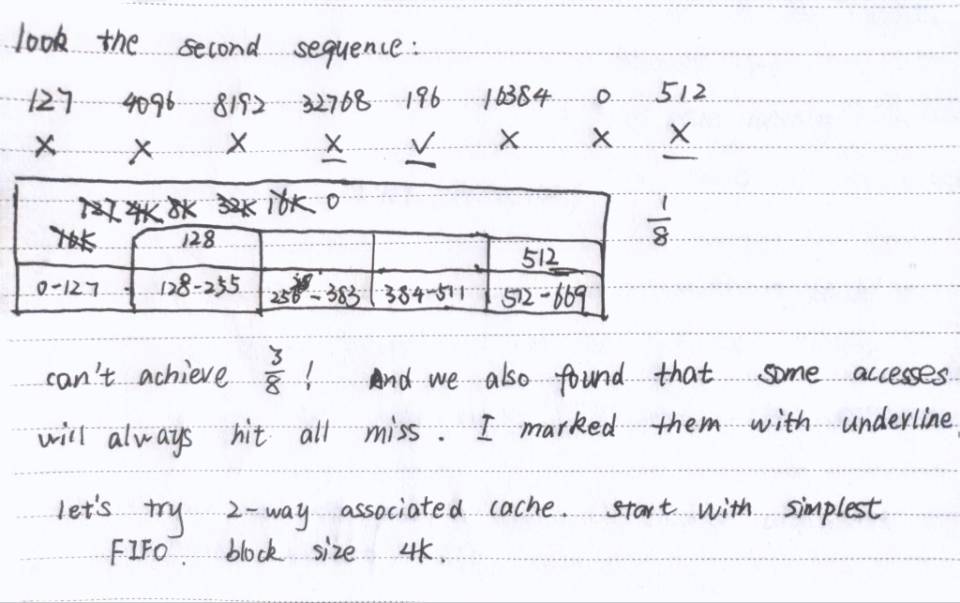 look the second sequence:
127 4096 8192 32768 196 16384 0 512
X X X X ✓ X X X
127 4K 8K 32K 16K 0
1/8
16K 128 512
0-127 128-255 256-383 384-511 512-669
can't achieve 3/8! And we also found that some accesses
will always hit all miss. I marked them with underline.
let's try 2-way associated cache. start with simplest
FIFO. block size 4K.